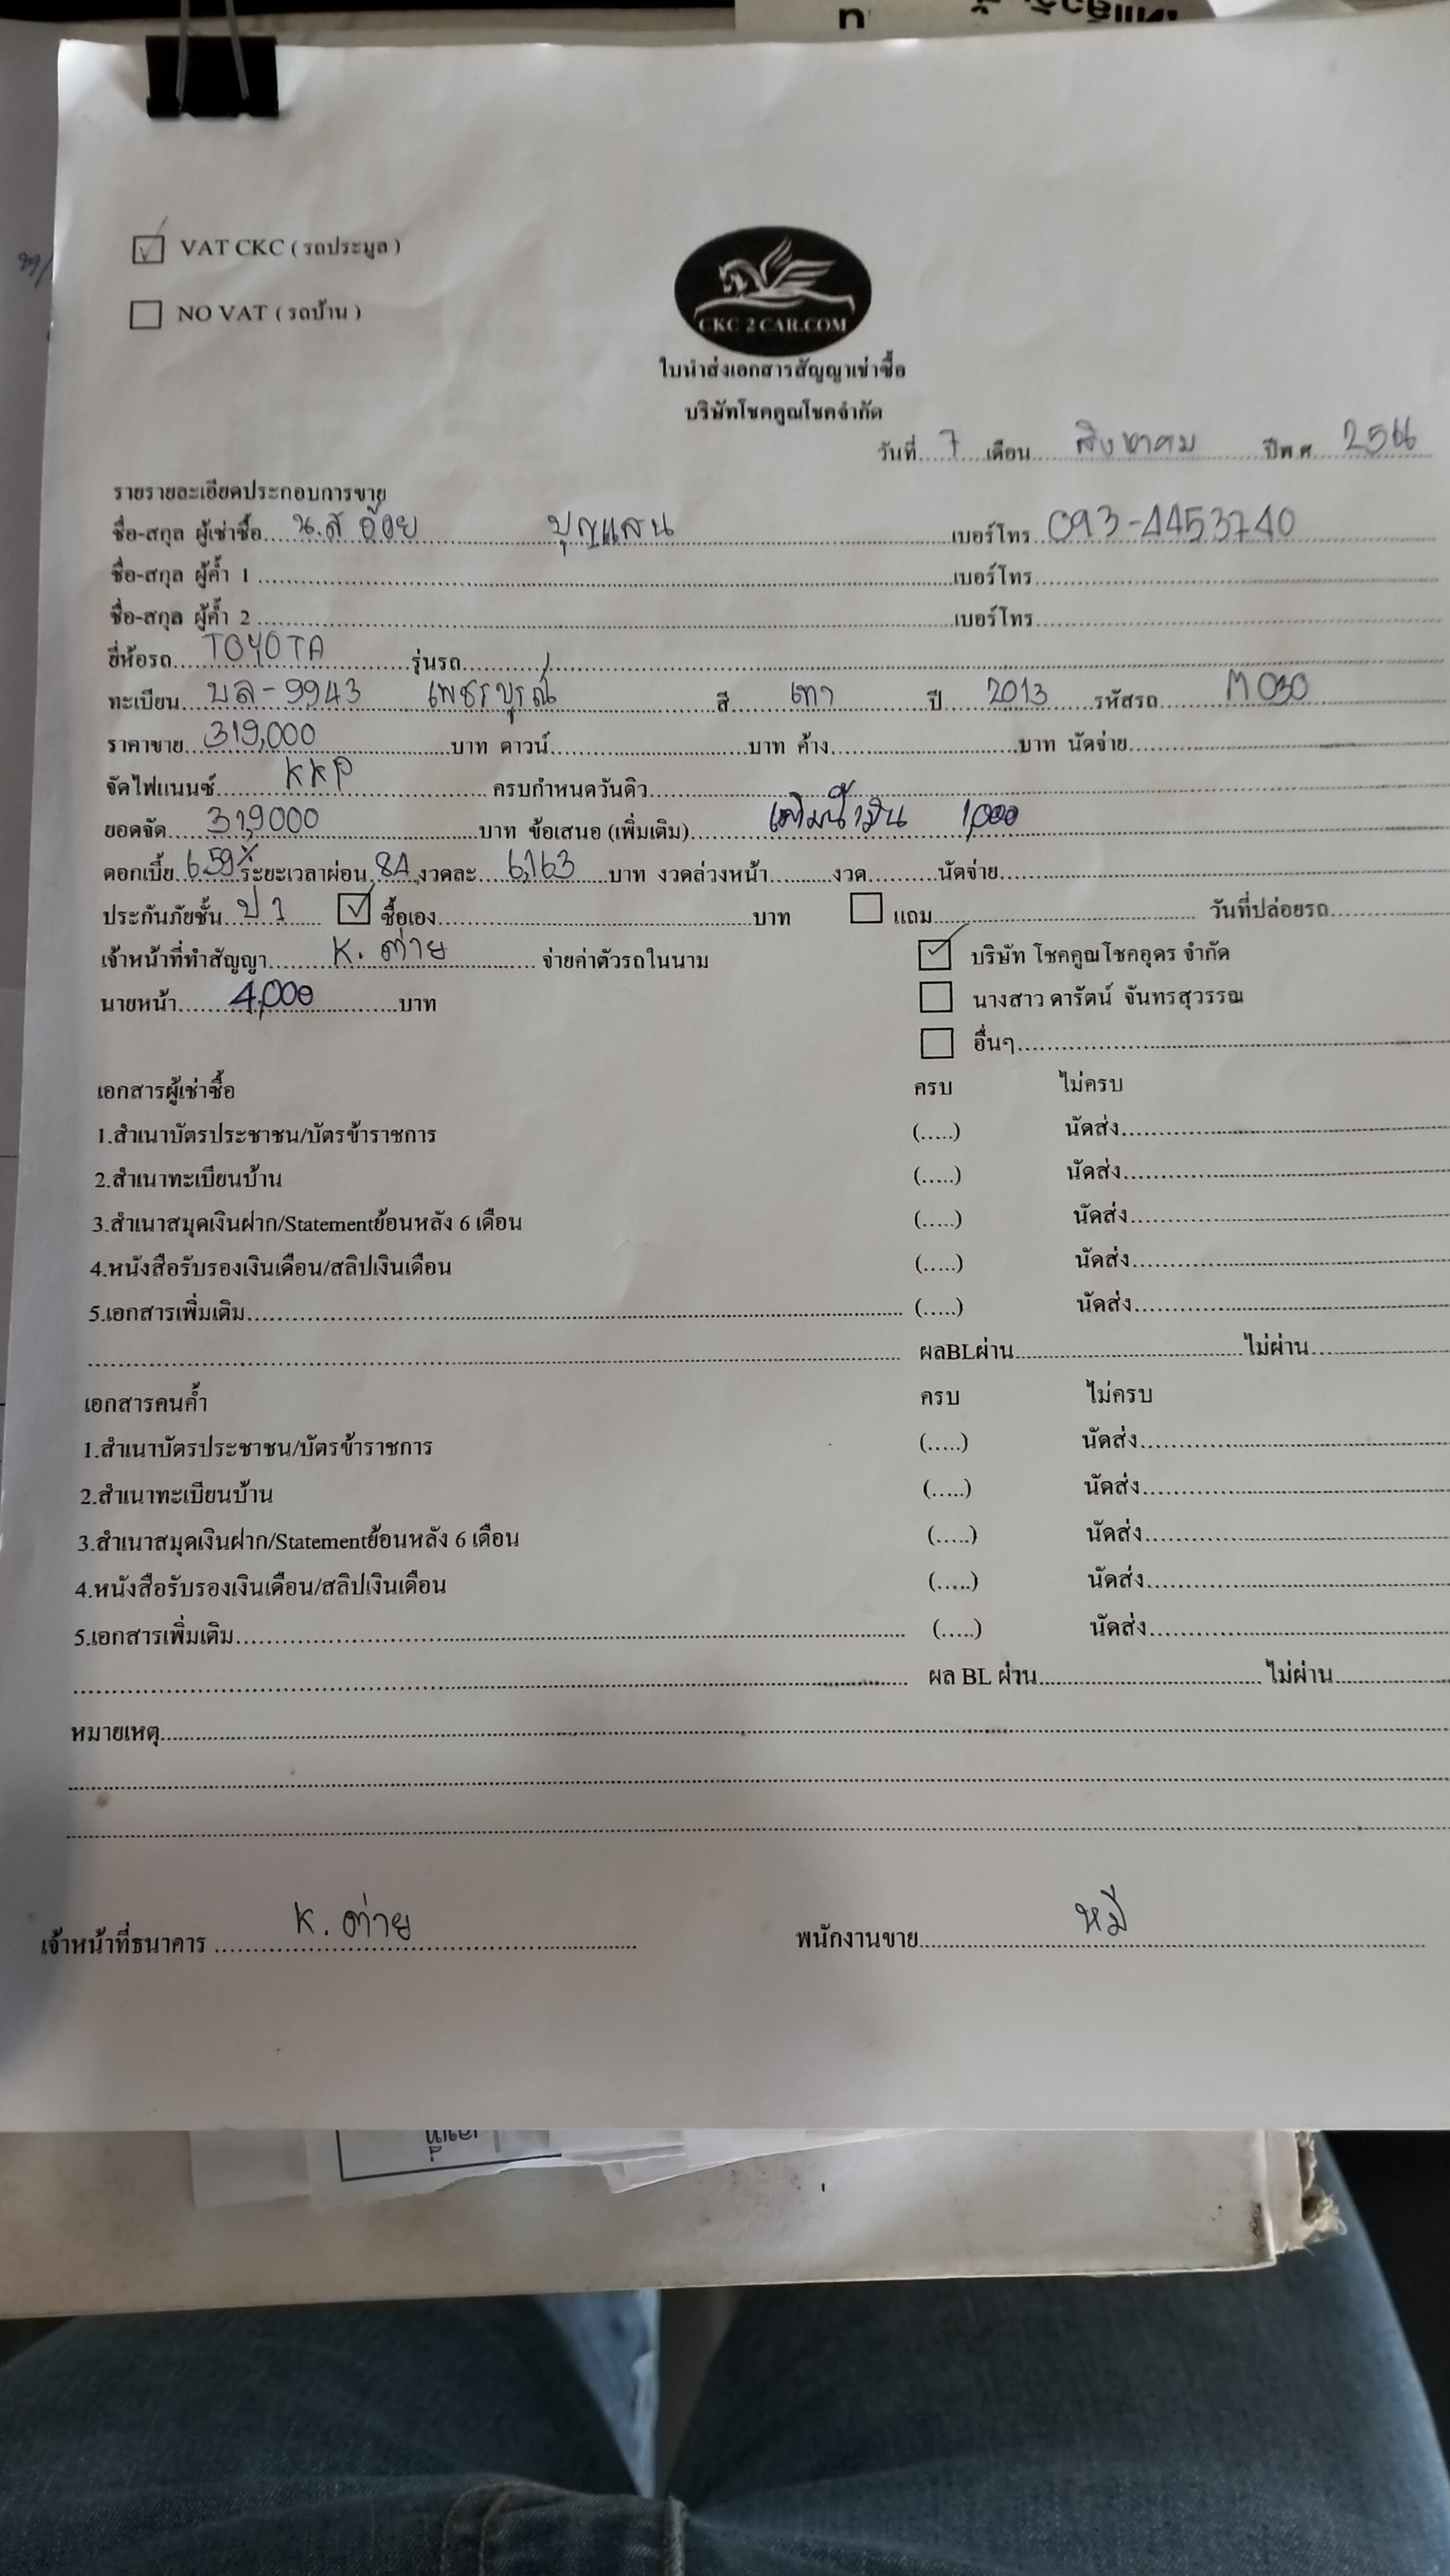 VAT CKC ( รถประมูล )
NO VAT ( รถบ้าน )
CKC 2 CAR.COM
ใบนำส่งเอกสารสัญญาเช่าซื้อ
บริษัทโชคคูณโชคจำกัด
วันที่.....7.....เดือน.....สิงหาคม.....ปีพ.ศ.....2566
รายรายละเอียดประกอบการขาย
ชื่อ-สกุล ผู้เช่าซื้อ....น.ส อ้อย บุญแสน....เบอร์โทร..093-4453740
ชื่อ-สกุล ผู้ค้ำ 1..........เบอร์โทร..........
ชื่อ-สกุล ผู้ค้ำ 2..........เบอร์โทร..........
ยี่ห้อรถ....TOYOTA....รุ่นรถ..........
ทะเบียน....บล-9943 เพชรบูรณ์....สี....เทา....ปี....2013....รหัสรถ....M 030
ราคาขาย..319,000....บาท ดาวน์..........บาท ค้าง..........บาท นัดจ่าย..........
จัดไฟแนนซ์....KKP....ครบกำหนดวันดิว..........
ยอดจัด....319,000....บาท ข้อเสนอ (เพิ่มเติม)....เติมน้ำมัน 1,000
ดอกเบี้ย..6.59%..ระยะเวลาผ่อน..84..งวดละ....6,163....บาท งวดล่วงหน้า..........งวด..........นัดจ่าย..........
ประกันภัยชั้น..ป 1.... ซื้อเอง..........บาท แถม.......... วันที่ปล่อยรถ..........
เจ้าหน้าที่ทำสัญญา....K. ต่าย.... จ่ายค่าตัวรถในนาม บริษัท โชคคูณโชคอุดร จำกัด
นายหน้า....4,000....บาท นางสาว ดารัตน์ จันทรสุวรรณ
อื่นๆ..........
เอกสารผู้เช่าซื้อ ครบ ไม่ครบ
1.สำเนาบัตรประชาชน/บัตรข้าราชการ (.....) นัดส่ง..........
2.สำเนาทะเบียนบ้าน (.....) นัดส่ง..........
3.สำเนาสมุดเงินฝาก/Statementย้อนหลัง 6 เดือน (.....) นัดส่ง..........
4.หนังสือรับรองเงินเดือน/สลิปเงินเดือน (.....) นัดส่ง..........
5.เอกสารเพิ่มเติม.......... (.....) นัดส่ง..........
.......... ผลBLผ่าน..........ไม่ผ่าน..........
เอกสารคนค้ำ ครบ ไม่ครบ
1.สำเนาบัตรประชาชน/บัตรข้าราชการ (.....) นัดส่ง..........
2.สำเนาทะเบียนบ้าน (.....) นัดส่ง..........
3.สำเนาสมุดเงินฝาก/Statementย้อนหลัง 6 เดือน (.....) นัดส่ง..........
4.หนังสือรับรองเงินเดือน/สลิปเงินเดือน (.....) นัดส่ง..........
5.เอกสารเพิ่มเติม.......... (.....) นัดส่ง..........
.......... ผล BL ผ่าน.......... ไม่ผ่าน..........
หมายเหตุ..........
เจ้าหน้าที่ธนาคาร ....K. ต่าย.... พนักงานขาย....หมี....